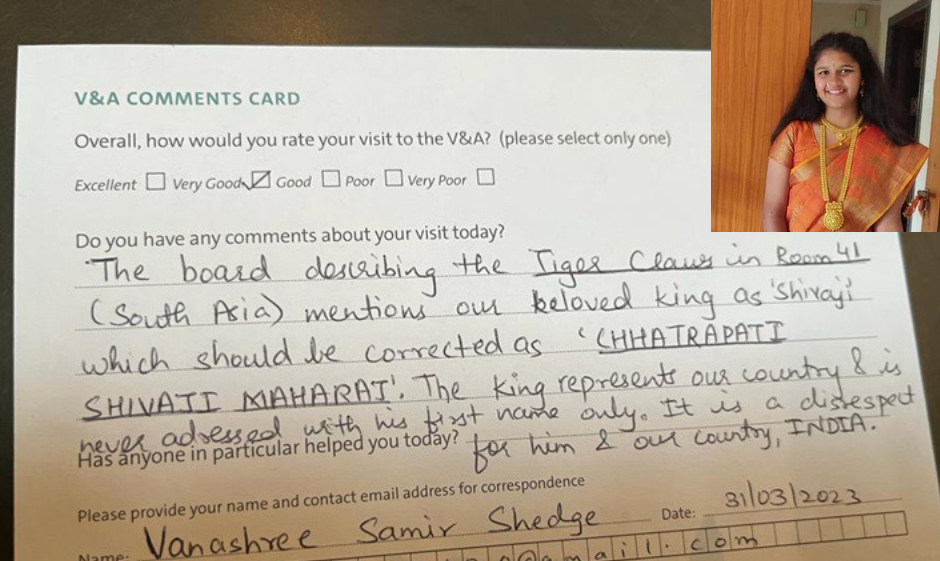 V&A COMMENTS CARD
Overall, how would you rate your visit to the V&A? (please select only one)
Excellent Very Good Good Poor Very Poor
Do you have any comments about your visit today?
The board describing the Tiger Claws in Room 41
(South Asia) mentions our beloved king as 'Shivaji'
which should be corrected as 'CHHATRAPATI
SHIVAJI MAHARAJ'. The king represents our country & is
never adressed with his first name only. It is a disrespect
Has anyone in particular helped you today? for him & our country, INDIA.
Please provide your name and contact email address for correspondence
Name: Vanashree Samir Shedge Date: 31/03/2023
@gmail.com